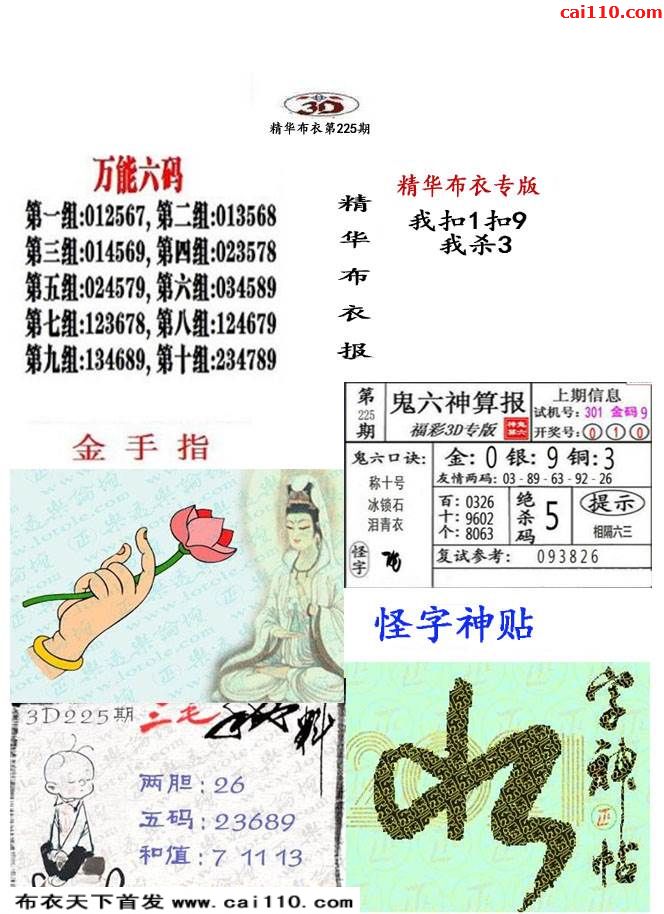 cai110.com
3D
精华布衣第225期
万能六码
第一组:012567,第二组:013568
第三组:014569,第四组:023578
第五组:024579,第六组:034589
第七组:123678,第八组:124679
第九组:134689,第十组:234789
精华布衣报
精华布衣专版
我扣1扣9
我杀3
金手指
第225期
鬼六神算报
福彩3D专版
上期信息
试机号:301 金码9
开奖号:010
鬼六口诀:
称十号
冰锁石
泪青衣
怪字
金:0 银:9 铜:3
友情两码:03-89-63-92-26
百:0326
十:9602
个:8063
绝杀码
5
提示
相隔六三
复试参考: 093826
怪字神贴
3D225期
三毛
料
两胆:26
五码:23689
和值:7 11 13
字神帖
布衣天下首发 www.cai110.com